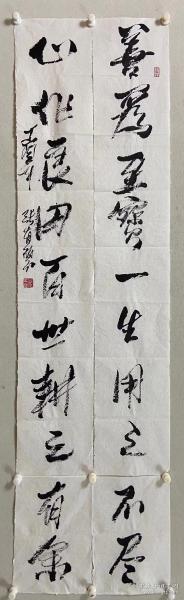 善為至寶一生用之不盡
心作良田百世耕之有余